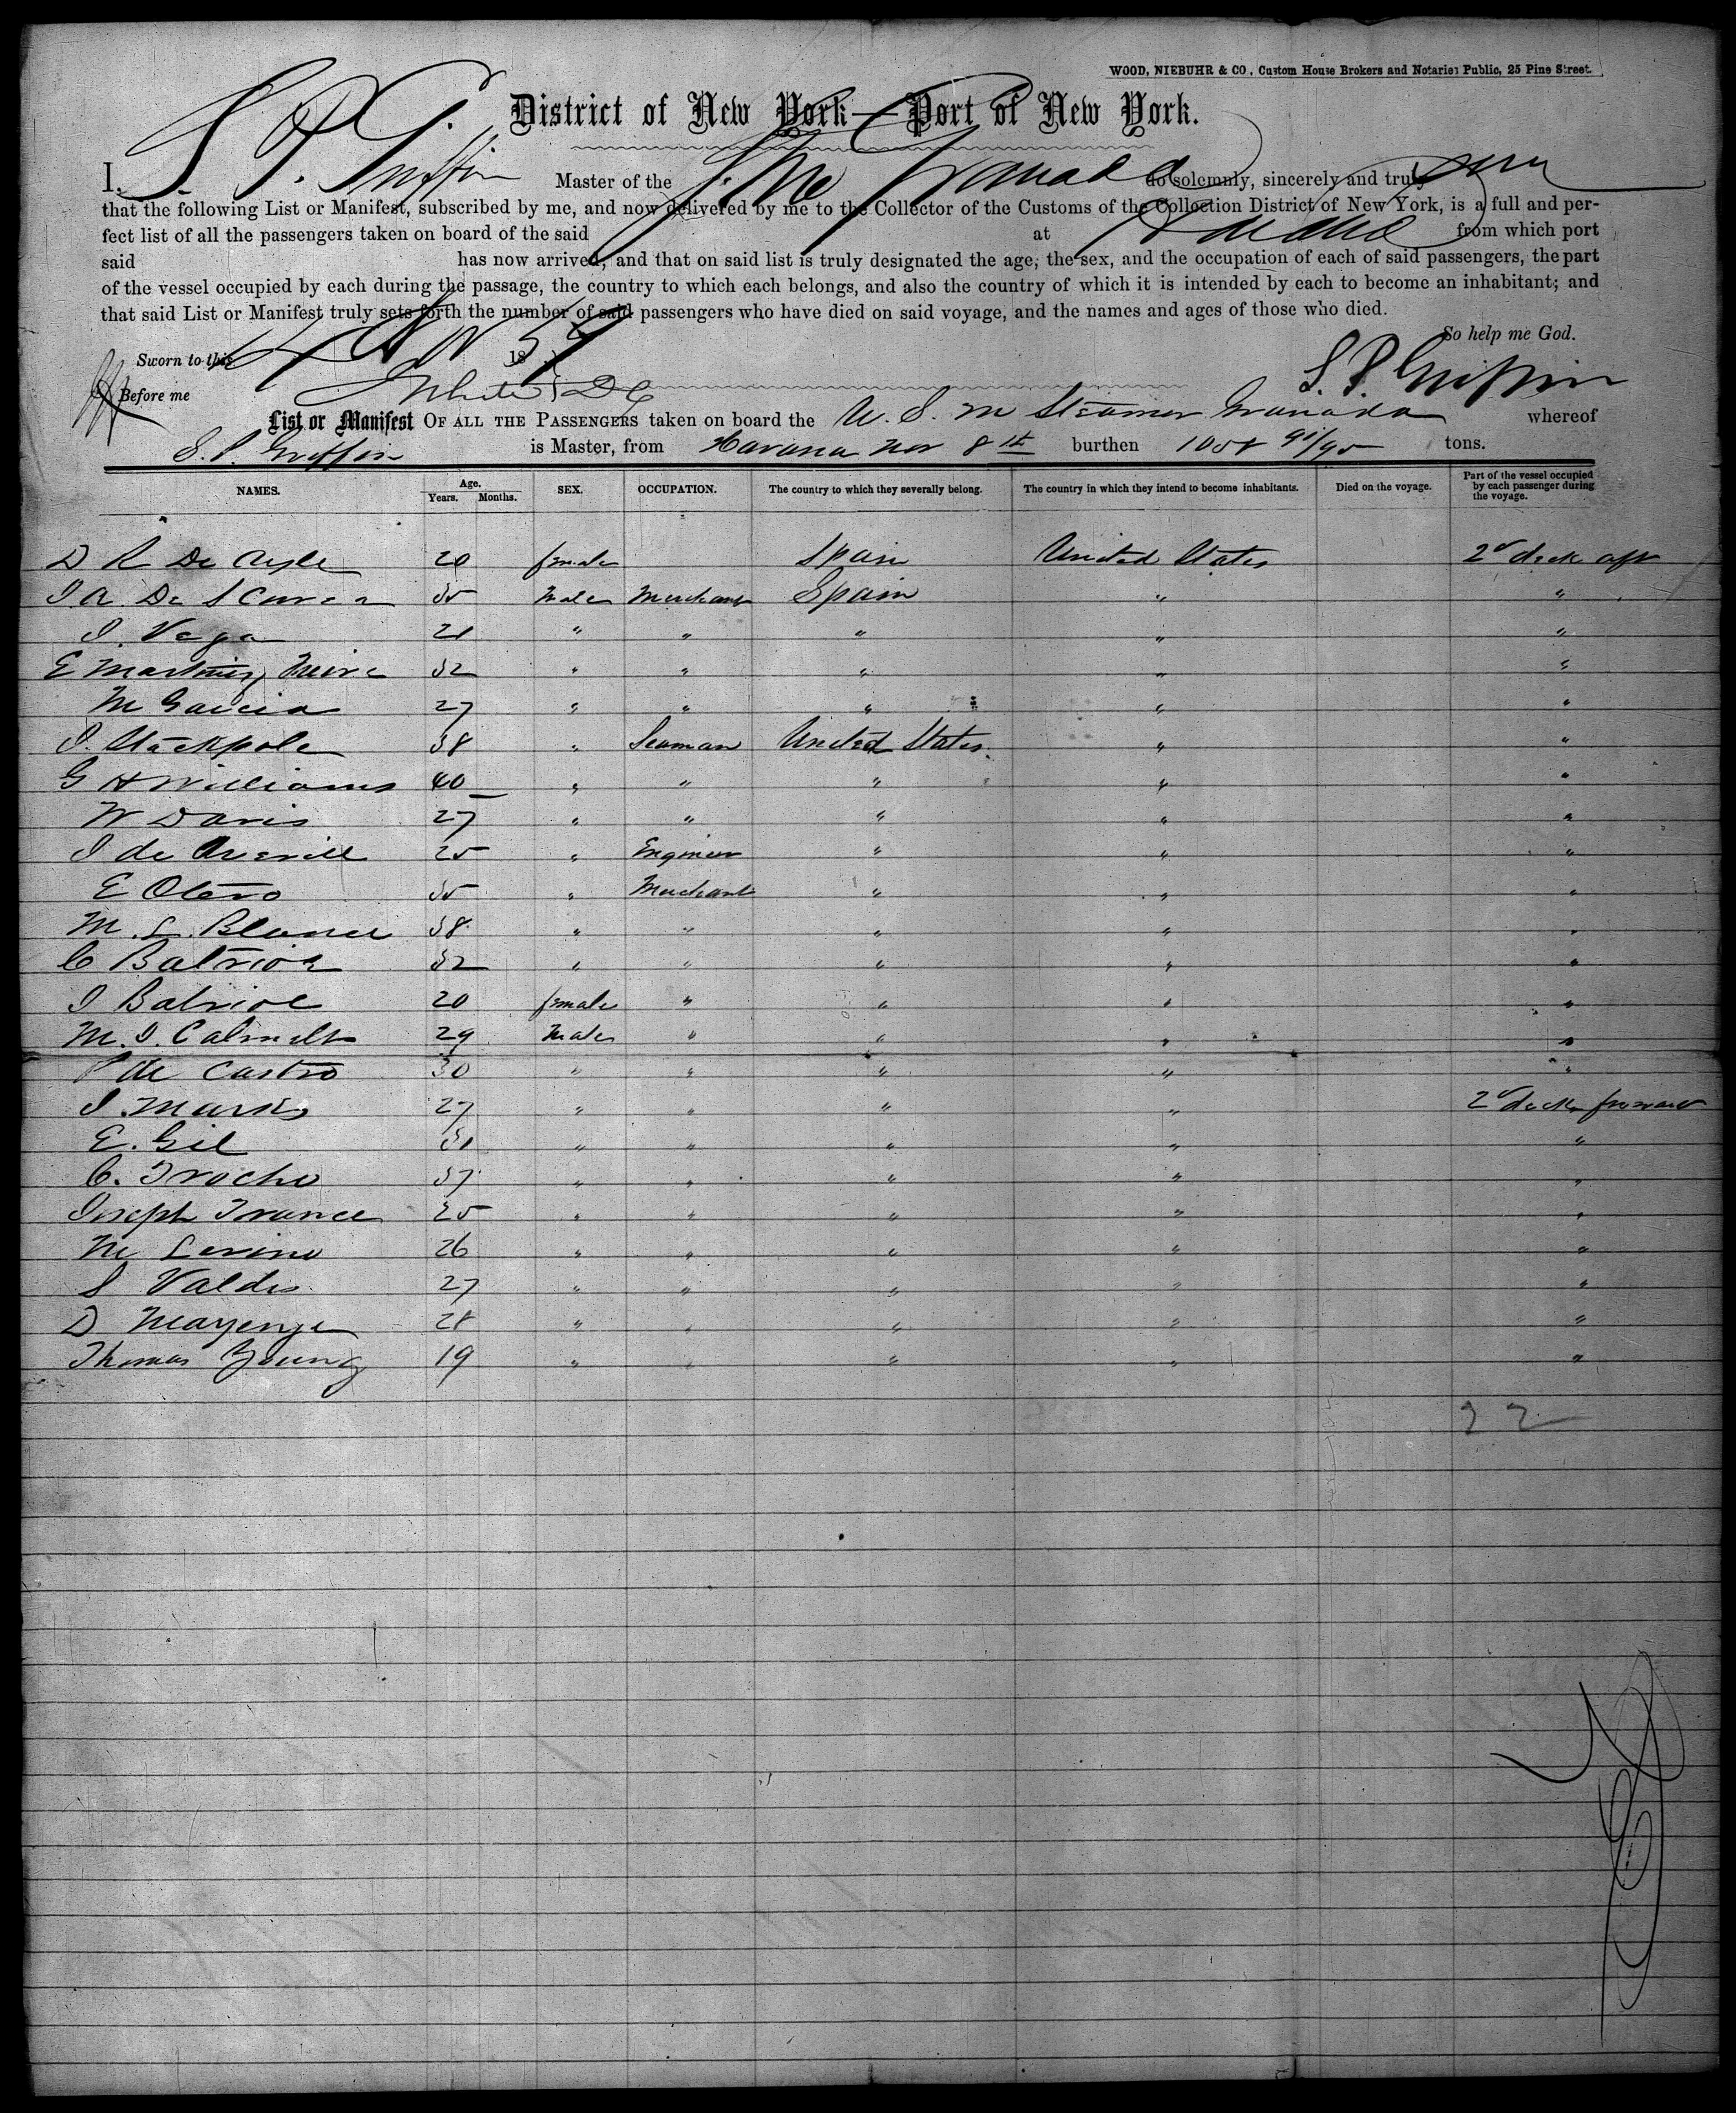 WOOD, NIEBUHR & CO., Custom House Brokers and Notaries Public, 25 Pine Street.
District of New York—Port of New York.
I, S. P. Griffin Master of the Str Granada do solemnly, sincerely and truly swear
that the following List or Manifest, subscribed by me, and now delivered by me to the Collector of the Customs of the Collection District of New York, is a full and per-
fect list of all the passengers taken on board of the said at Havana from which port
said has now arrived, and that on said list is truly designated the age, the sex, and the occupation of each of said passengers, the part
of the vessel occupied by each during the passage, the country to which each belongs, and also the country of which it is intended by each to become an inhabitant; and
that said List or Manifest truly sets forth the number of said passengers who have died on said voyage, and the names and ages of those who died.
So help me God.
Sworn to this 14 Nov 1857
Before me S. P. Griffin
List or Manifest OF ALL THE PASSENGERS taken on board the U. S. M Steamer Granada whereof
S. P. Griffin is Master, from Havana Nov 8th burthen tons.
NAMES. Age. Years. Months. SEX. OCCUPATION. The country to which they severally belong. The country in which they intend to become inhabitants. Died on the voyage. Part of the vessel occupied by each passenger during the voyage.
D R De 20 female Spain United States 2d deck aft
J A De 35 Male Merchant Spain " "
J. Vega 21 " " " " "
E Martinez 32 " " " " "
M Garcia 27 " " " " "
J. Stackpole 38 " Seaman United States " "
G H Williams 40 " " " " "
W Davis 27 " " " " "
J de 25 " Engineer " " "
E Otero 35 " Merchant " " "
M. L. Blanco 38 " " " " "
C 32 " " " " "
J 20 female " " " "
M. J. 29 Male " " " "
P de Castro 30 " " " " "
J. Marks 27 " " " " 2d deck forward
E. Gil 31 " " " " "
C. Trocho 37 " " " " "
Joseph 25 " " " " "
M Levino 26 " " " " "
S Valdes 27 " " " " "
D 28 " " " " "
Thomas Young 19 " " " " "
22